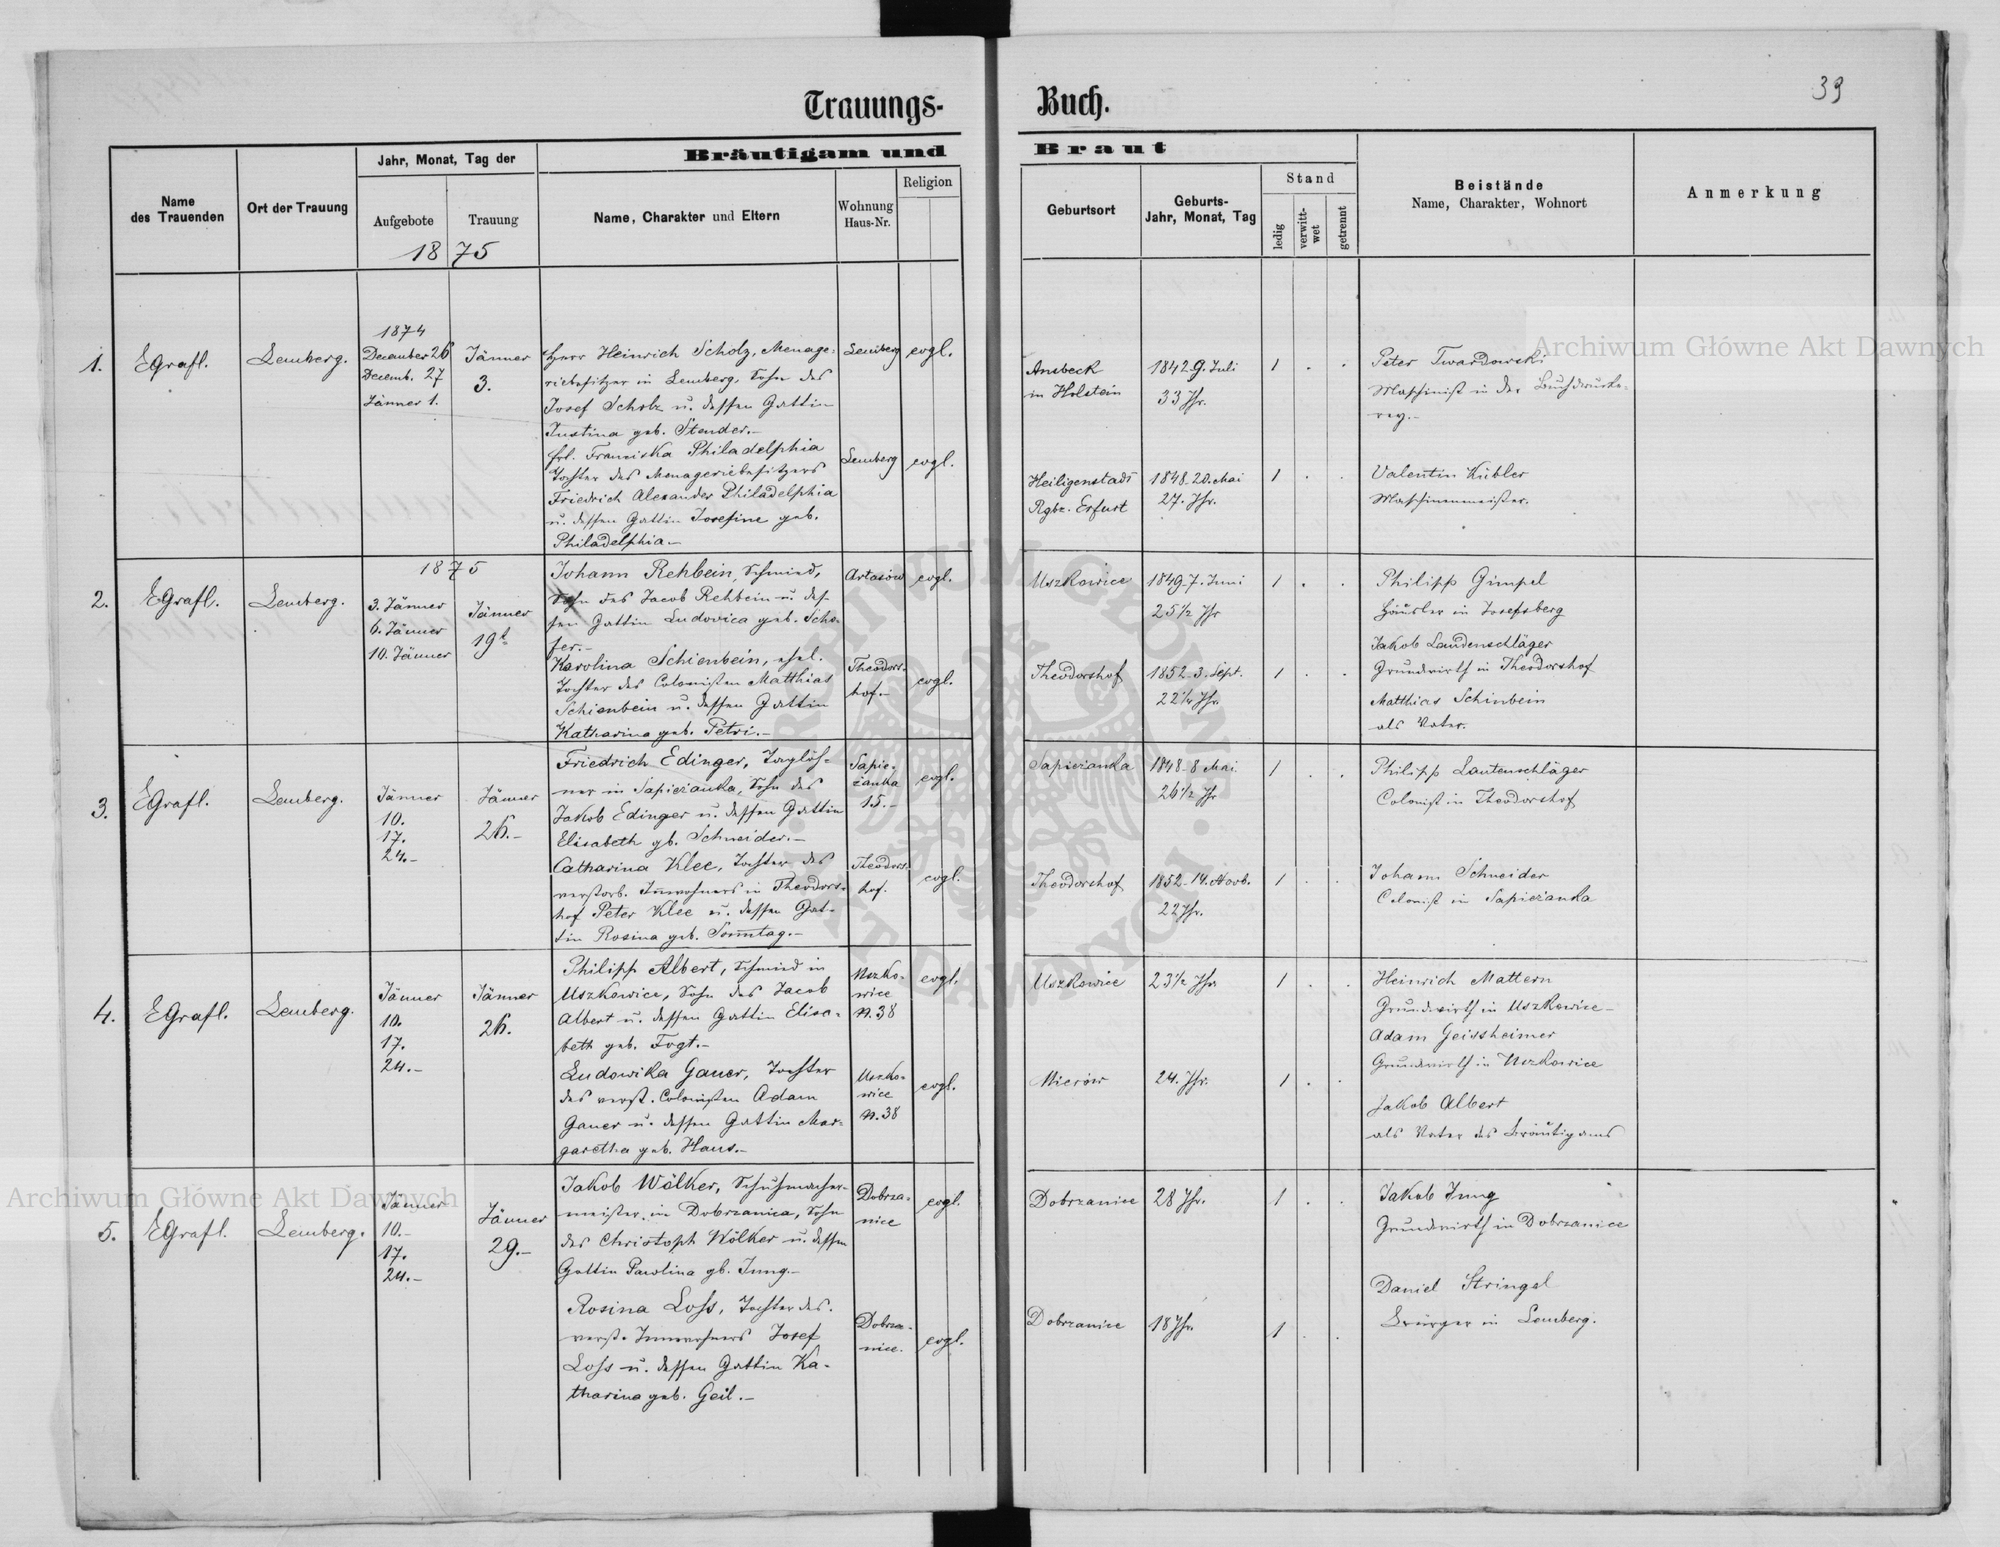 Trauungs-
Buch.
39
Name
des Trauenden
Ort der Trauung
Jahr, Monat, Tag der
Aufgebote
Trauung
1875
Bräutigam und
Name, Charakter und Eltern
Wohnung
Haus-Nr.
Religion
Braut
Geburtsort
Geburts-
Jahr, Monat, Tag
Stand
ledig
verwitt-
wet
getrennt
Beistände
Name, Charakter, Wohnort
Anmerkung
1.
EGrafl.
Lemberg.
1874
December 26
Decemb. 27
Jänner 1.
Jänner
3.
Herr Heinrich Scholz, Menage-
riebesitzer in Lemberg, Sohn des
Josef Scholz u. dessen Gattin
Justina geb. Stender.-
Lemberg
evgl.
Frl. Franciska Philadelphia
Tochter des Menageriebesitzers
Friedrich Alexander Philadelphia
u. dessen Gattin Josefine geb.
Philadelphia-
Lemberg
evgl.
Ansbeck
in Holstein
1842 9. Juli
33 Jhr.
1 . .
Peter Twardowski
Maschinist in der Buchdrucke-
rey.-
Heiligenstadt
Rgbz. Erfurt
1848. 20. Mai
27. Jhr.
1 . .
Valentin Kübler
Maschinenmeister.
2.
EGrafl.
Lemberg.
1875
3. Jänner
6. Jänner
10. Jänner
Jänner
19t
Johann Rehbein, Schmied,
Sohn des Jacob Rehbein u. des-
sen Gattin Ludovica geb. Scho-
fer.-
Artasów
evgl.
Karolina Schienbein, ehel.
Tochter des Colonisten Matthias
Schienbein u. dessen Gattin
Katharina geb. Petri.-
Theodors-
hof.-
evgl.
Uszkowice
1849 7. Juni
25 1/2 Jhr
1 . .
Philipp Gimpel
Häusler in Josefsberg
Jakob Laudenschläger
Grundwirth in Theodorshof
Theodorshof
1852 3. Sept.
22 1/4 Jhr.
1 . .
Matthias Schinbein
als Vater.
3.
EGrafl.
Lemberg.
Jänner
10.
17.
24.-
Jänner
26.-
Friedrich Edinger, Taglöh-
ner in Sapieżanka, Sohn des
Jakob Edinger u. dessen Gattin
Elisabeth gb. Schneider.-
Sapie-
żanka
15.-
evgl.
Catharina Klee, Tochter des
verstorb. Innwohners in Theodors-
hof Peter Klee u. dessen Gat-
tin Rosina geb. Sonntag.-
Theodors-
hof.
evgl.
Sapieżanka
1848 8 Mai
26 1/2 Jhr
1 . .
Philipp Lautenschläger
Colonist in Theodorshof
Theodorshof
1852 14. Novb.
22 Jhr.
1 . .
Johann Schneider
Colonist in Sapieżanka
4.
EGrafl.
Lemberg.
Jänner
10.
17.
24.-
Jänner
26.
Philipp Albert, Schmied in
Uszkowice, Sohn des Jacob
Albert u. dessen Gattin Elisa-
beth geb. Fogt.-
Uszko-
wice
N. 38
evgl.
Ludowika Gauer, Tochter
des verst. Colonisten Adam
Gauer u. dessen Gattin Mar-
garetha geb. Haus.-
Uszko-
wice
N. 38
evgl.
Uszkowice
23 1/2 Jhr
1 . .
Heinrich Mattern
Grundwirth in Uszkowice-
Adam Geissheimer
Grundwirth in Uszkowice
Mierów
24. Jhr.
1 . .
Jakob Albert
als Vater des Bräutigams
5.
EGrafl.
Lemberg.
Jänner
10.-
17.
24.-
Jänner
29.-
Jakob Wölker, Schuhmacher-
meister in Dobrzanica, Sohn
des Christoph Wölker u. dessen
Gattin Paulina gb. Jung.-
Dobrza-
nice
evgl.
Rosina Loss, Tochter des
verst. Innwohners Josef
Loss u. dessen Gattin Ka-
tharina geb. Geil.-
Dobrza-
nice.
evgl.
Dobrzanice
28 Jhr.
1 . .
Jakob Jung
Grundwirth in Dobrzanice
Dobrzanice
18 Jhr.
1 . .
Daniel Stringel
Bürger in Lemberg.
Archiwum Główne Akt Dawnych
Archiwum Główne Akt Dawnych
ARCHIWUM GŁÓWNE AKT DAWNYCH